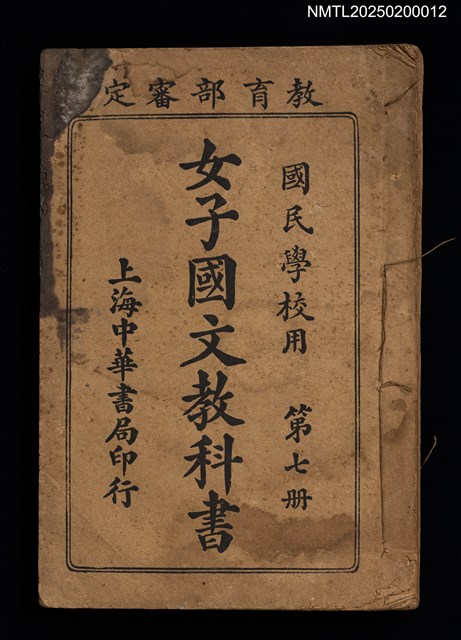 NMTL20250200012
教育部審定
國民學校用 第七册
女子國文教科書
上海中華書局印行